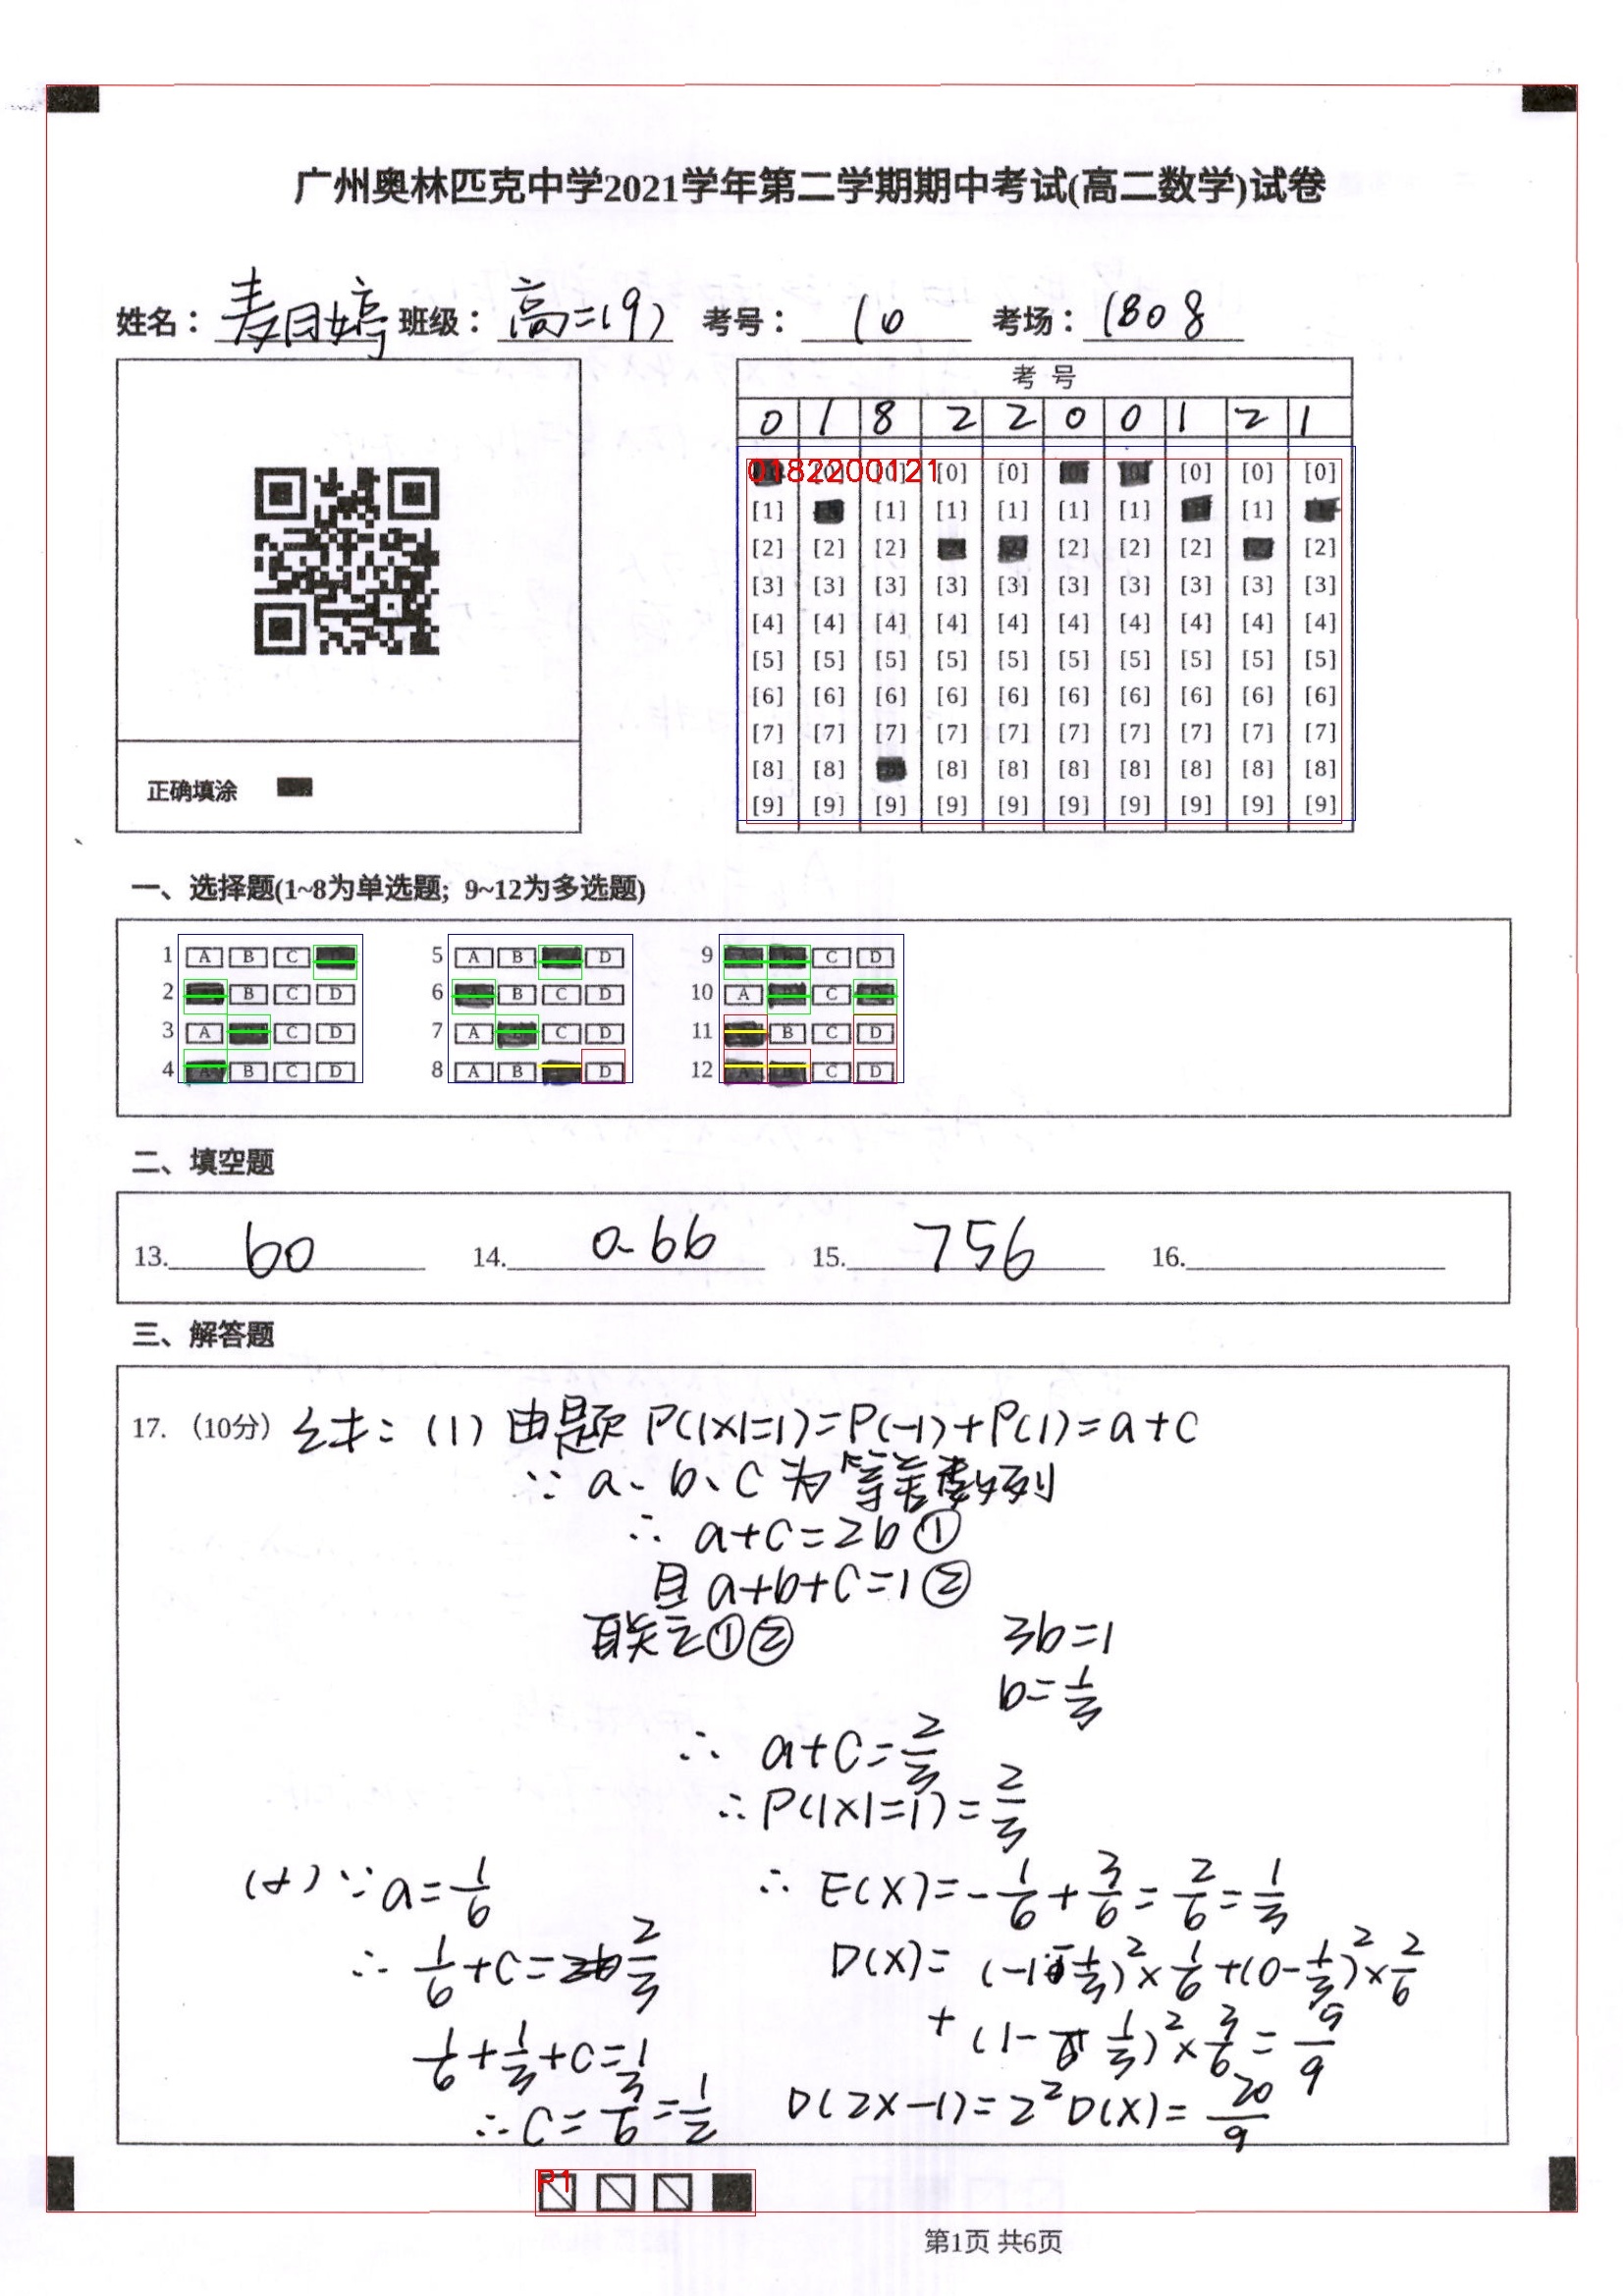 广州奥林匹克中学2021学年第二学期期中考试(高二数学)试卷
姓名： 麦目婷 班级： 高二(9) 考号： 10 考场： 1808
考 号
0 1 8 2 2 0 0 1 2 1
0182200121
[0] [0] [0] [0] [0] [0] [0] [0]
[1] [1] [1] [1] [1] [1] [1]
[2] [2] [2] [2] [2] [2] [2]
[3] [3] [3] [3] [3] [3] [3] [3] [3] [3]
[4] [4] [4] [4] [4] [4] [4] [4] [4] [4]
[5] [5] [5] [5] [5] [5] [5] [5] [5] [5]
[6] [6] [6] [6] [6] [6] [6] [6] [6] [6]
[7] [7] [7] [7] [7] [7] [7] [7] [7] [7]
[8] [8] [8] [8] [8] [8] [8] [8] [8]
[9] [9] [9] [9] [9] [9] [9] [9] [9] [9]
正确填涂
一、选择题(1~8为单选题; 9~12为多选题)
1 A B C 5 A B D 9 C D
2 B C D 6 B C D 10 A C
3 A C D 7 A C D 11 B C D
4 B C D 8 A B D 12 C D
二、填空题
13. 60 14. 0.66 15. 756 16.
三、解答题
17.（10分）解：(1) 由题 P(|X|=1)=P(-1)+P(1)=a+c
∵ a、b、c 为等差数列
∴ a+c=2b ①
且 a+b+c=1 ②
联立①② 3b=1
b=1/3
∴ a+c=2/3
∴ P(|X|=1)=2/3
(2) ∵ a=1/6 ∴ E(X)=-1/6+3/6=2/6=1/3
∴ 1/6+c=2/3 D(X)=(-1-1/3)²×1/6+(0-1/3)²×2/6
1/6+1/3+c=1 +(1-1/3)²×3/6=5/9
∴ c=3/6=1/2 D(2X-1)=2²D(X)=20/9
P1
第1页 共6页